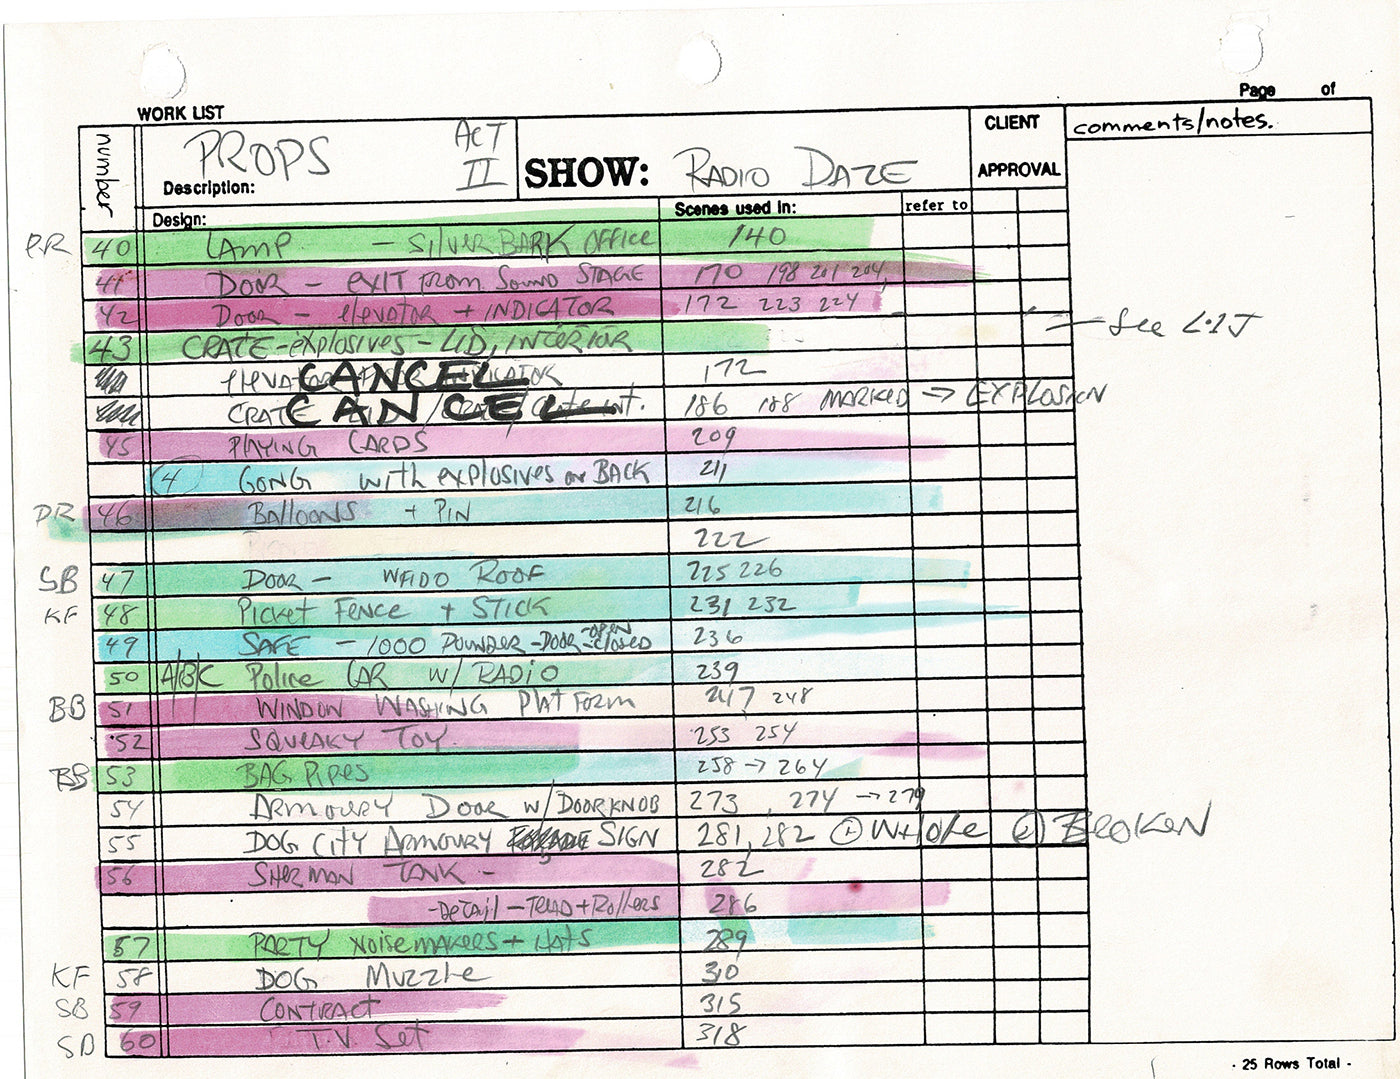 Page of
WORK LIST
number
PROPS ACT II
Description:
SHOW: RADIO DAZE
CLIENT APPROVAL
comments/notes.
Design: Scenes used in: refer to
PR 40 LAMP - SILVERBARK OFFICE 140
41 DOOR - EXIT FROM SOUND STAGE 170 198 201 204
42 DOOR - elevator + INDICATOR 172 223 224
See
43 CRATE-explosives-LID, INTERIOR
CANCEL 172
CRATE CANCEL int. 186 188 MARKED → EXPLOSION
45 PLAYING CARDS 209
4 GONG with explosives on BACK 211
PR 46 BALLOONS + PIN 216
222
SB 47 DOOR - WFIDO ROOF 225 226
KF 48 Picket Fence + STICK 231 232
49 SAFE - 1000 POUNDER - DOOR - OPEN - CLOSED 236
50 A/B/C Police CAR w/ RADIO 239
BB 51 WINDOW WASHING PlATFORM 247 248
52 SQUEAKY TOY 253 254
BB 53 BAG PIPES 258 → 264
54 ARMOURY DOOR w/ DOORKNOB 273, 274 → 279
55 DOG CITY ARMOURY SIGN 281, 282 ① WHOLE ② BROKEN
56 SHERMAN TANK - 282
-DETAIL - TREAD + Rollers 286
57 PARTY NOISEMAKERS + HATS 289
KF 58 DOG MUZZLE 310
SB 59 CONTRACT 315
60 T.V. Set 318
- 25 Rows Total -